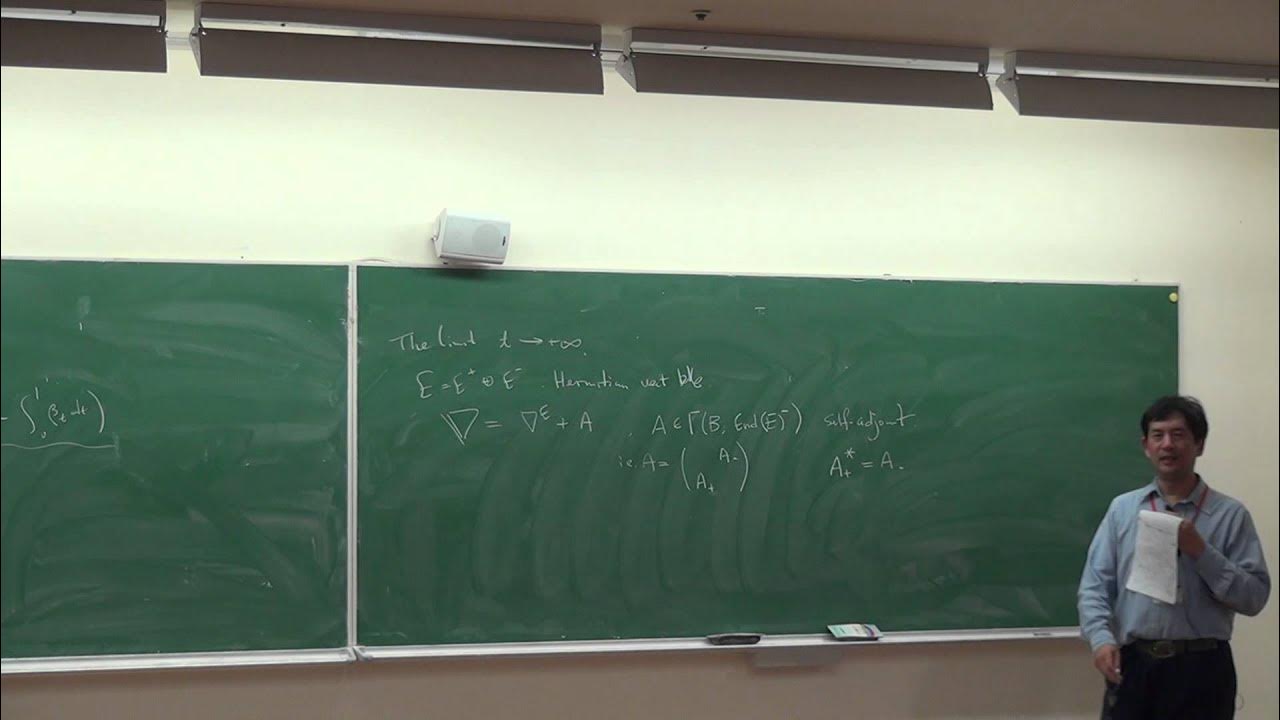 - ∫₀¹ βₜ dt )
The limit t → +∞.
E = E⁺ ⊕ E⁻ . Hermitian vect bdle
∇ = ∇ᴱ + A , A ∈ Γ(B, End(E)⁻) self-adjoint.
i.e. A = ( A₋ A₊ ) A₊* = A₋